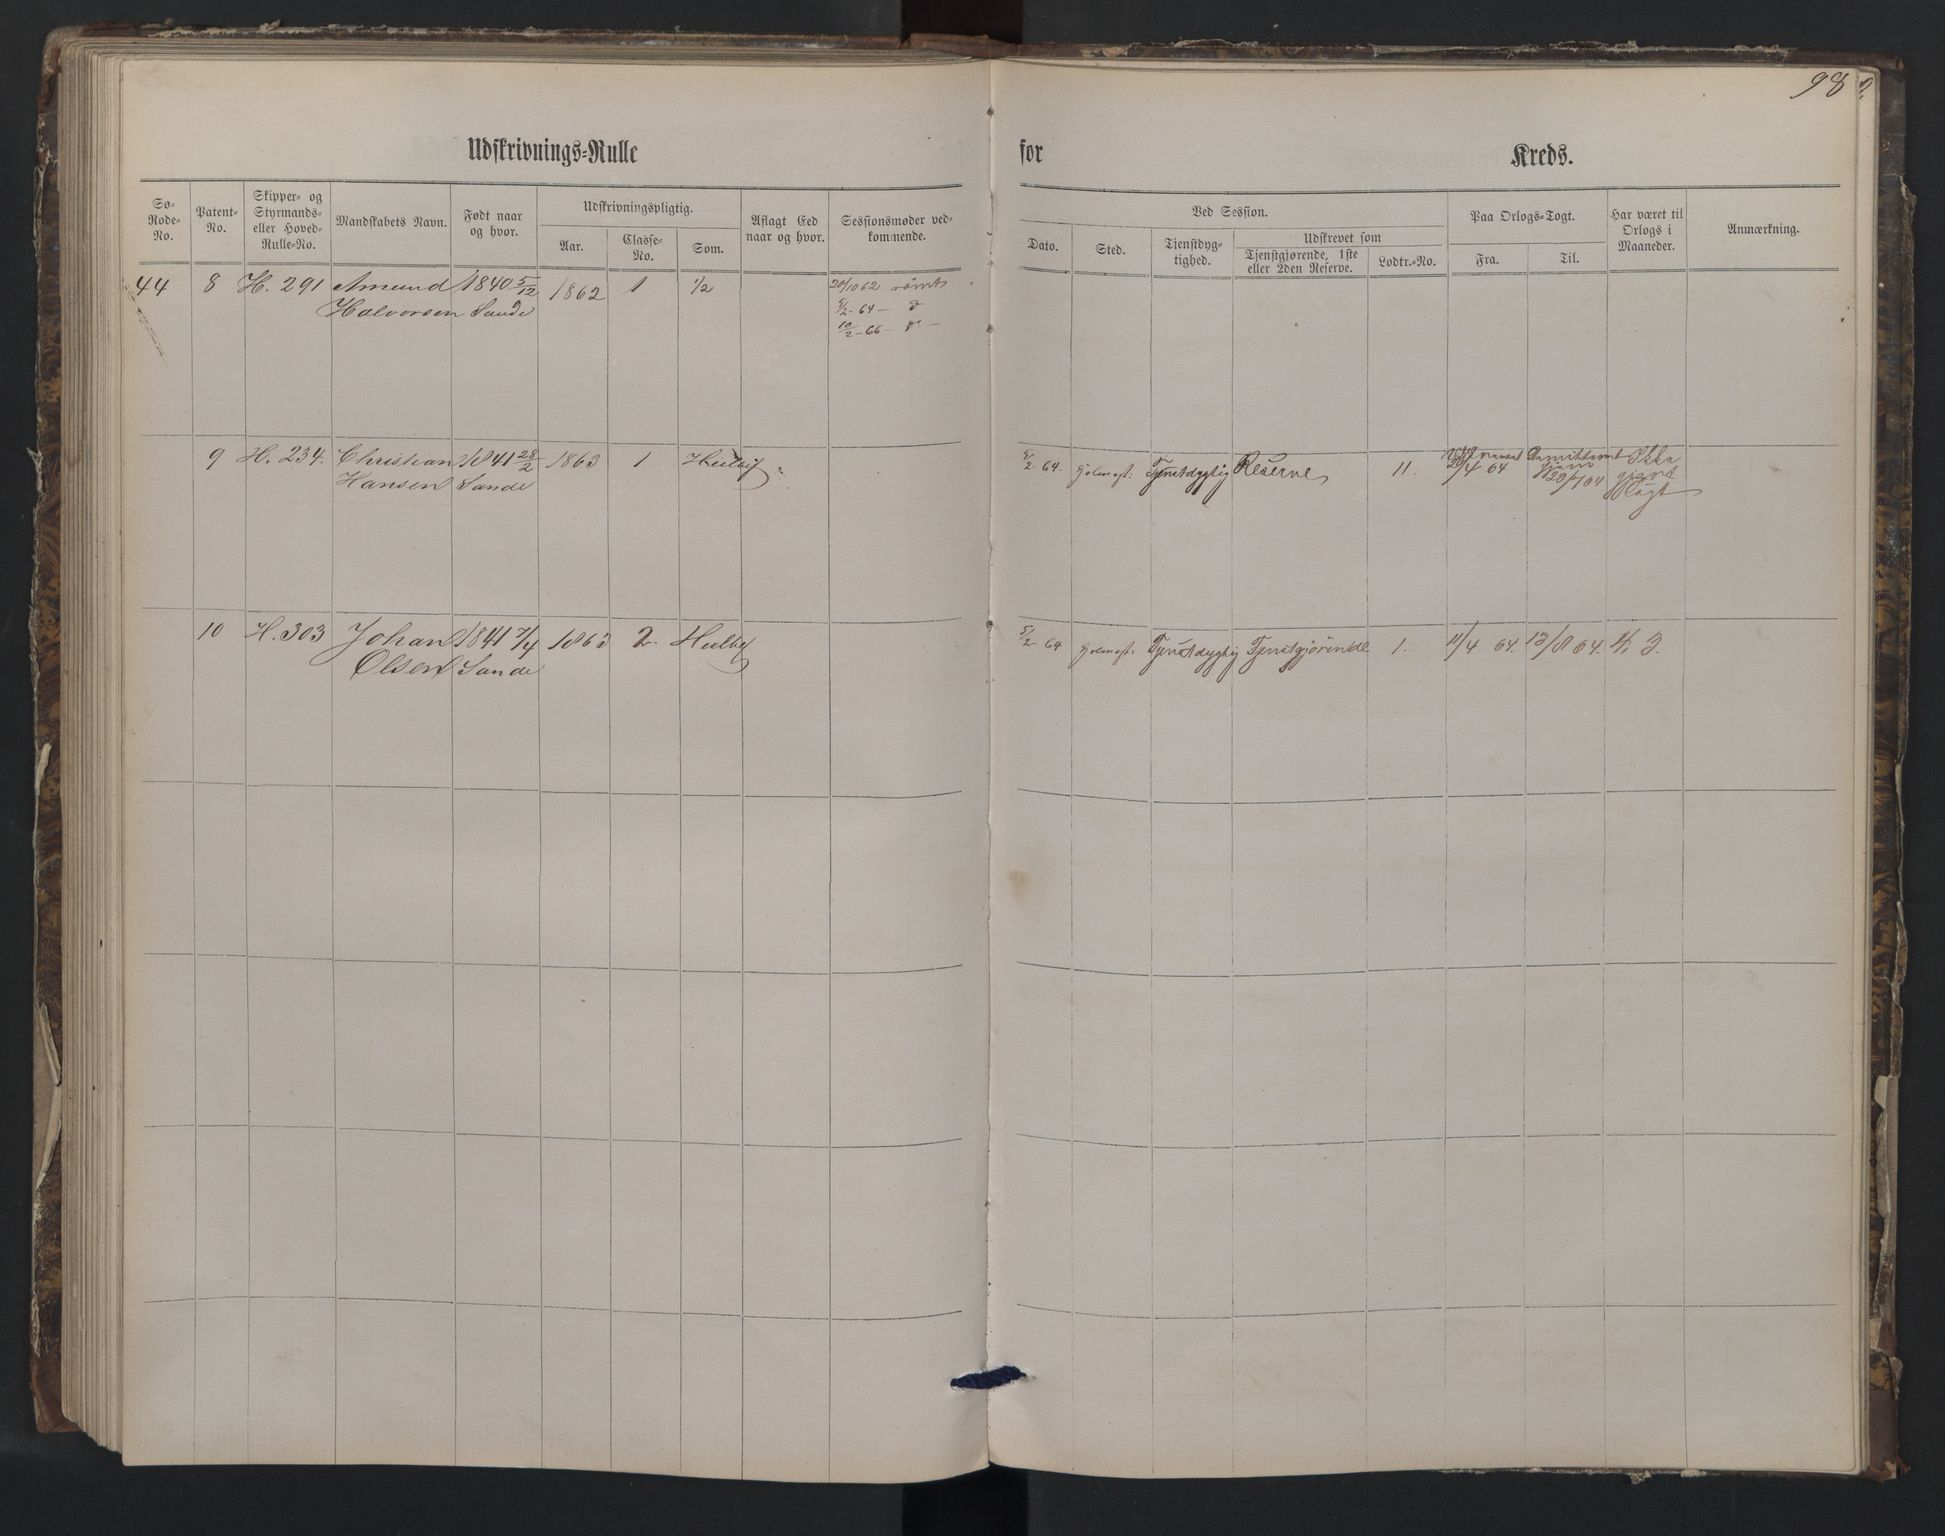 98
Udskrivnings-Rulle
for
Kreds.
Sø-
Rode-
No.
Patent-
No.
Skipper- og
Styrmands-
eller Hoved-
Rulle-No.
Mandskabets Navn.
Født naar
og hvor.
Udskrivningspligtig.
Aar.
Classe-
No.
Som.
Aflagt Eed
naar og hvor.
Sessionsmøder ved-
kommende.
Ved Session.
Dato.
Sted.
Tjenstdyg-
tighed.
Udskrevet som
Tjenstgjørende, 1ste
eller 2den Reserve.
Lodtr.-No.
Paa Orlogs-Togt.
Fra.
Til.
Har været til
Orlogs i
Maaneder.
Anmærkning.
44 8 H. 291 Amund 1840 5/12 1862 1 1/2 20/10 62 rømt
Halvorsen Sande 5/2-64 - d
10/2-66 - d -
9 H. 234. Christian 1841 28/2 1863 1 Heelbef 5/2-64 Holmest: Tjenstdygtig Reserve 11. 20/4 64 20/4 64 Ikke
Hansen Sande gjort
Togt
10 H. 303 Johan 1841 7/4 1863 2 Heelbef 5/2-64 Holmest: Tjenstdygtig Tjenstgjørende 1. 11/4 64. 13/8 64. 4, 3.
Olsen Sande